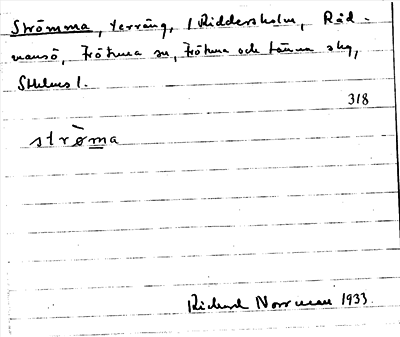 Strömma, terräng, i Riddersholm, Råd-
mansö, Frötuna sn, Frötuna och Länna skg,
Sthlms l.
318
strø̀ma
Richard Norrman 1933.